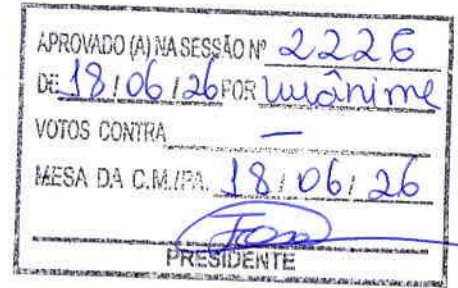 APROVADO (A) NA SESSÃO Nº 2226
DE 18/06/26 POR unânime
VOTOS CONTRA —
MESA DA C.M./PA. 18/06/26
PRESIDENTE